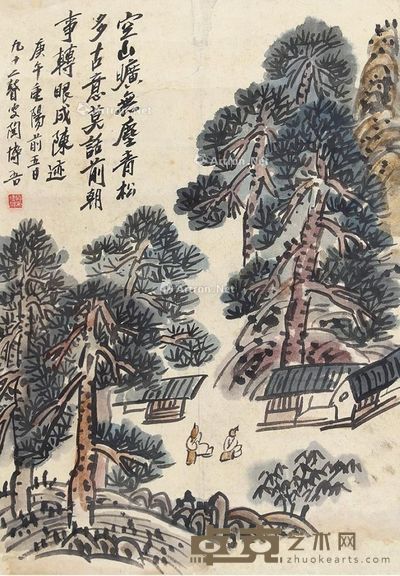 空山曠無塵青松
多古意莫話前朝
事轉眼成陳迹
庚午重陽前五日
九十二聾叟閔博吾
Artron.Net
Artron.Net
Artron.Net
Artron.Net
艺术网
zhuokearts.com